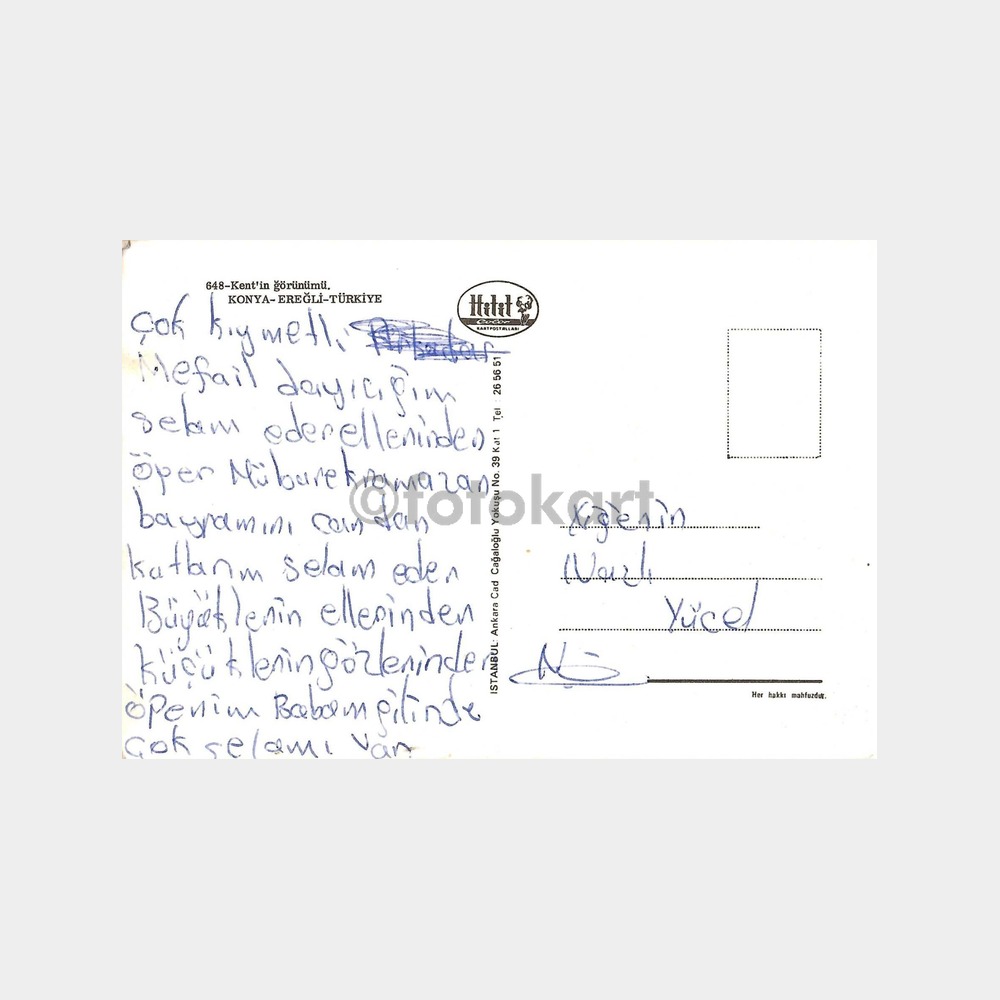 648-Kent'in görünümü.
KONYA-EREĞLİ-TÜRKİYE
Hitit
Color
KARTPOSTALLARI
Çok kıymetli
Mefail dayıcığım
selam eder ellerinden
Öper Mübarek ramazan
bayramını candan
kutlarım selam eden
Büyüklerin ellerinden
küçüklerin gözlerinden
öperim Babamgilinde
çok selamı var
İSTANBUL: Ankara Cad Cağaloğlu Yokuşu No. 39 Kat 1 Tel : 26 56 51
©fotokart
Yiğenin
Nazlı
Yücel
Her hakkı mahfuzdur.